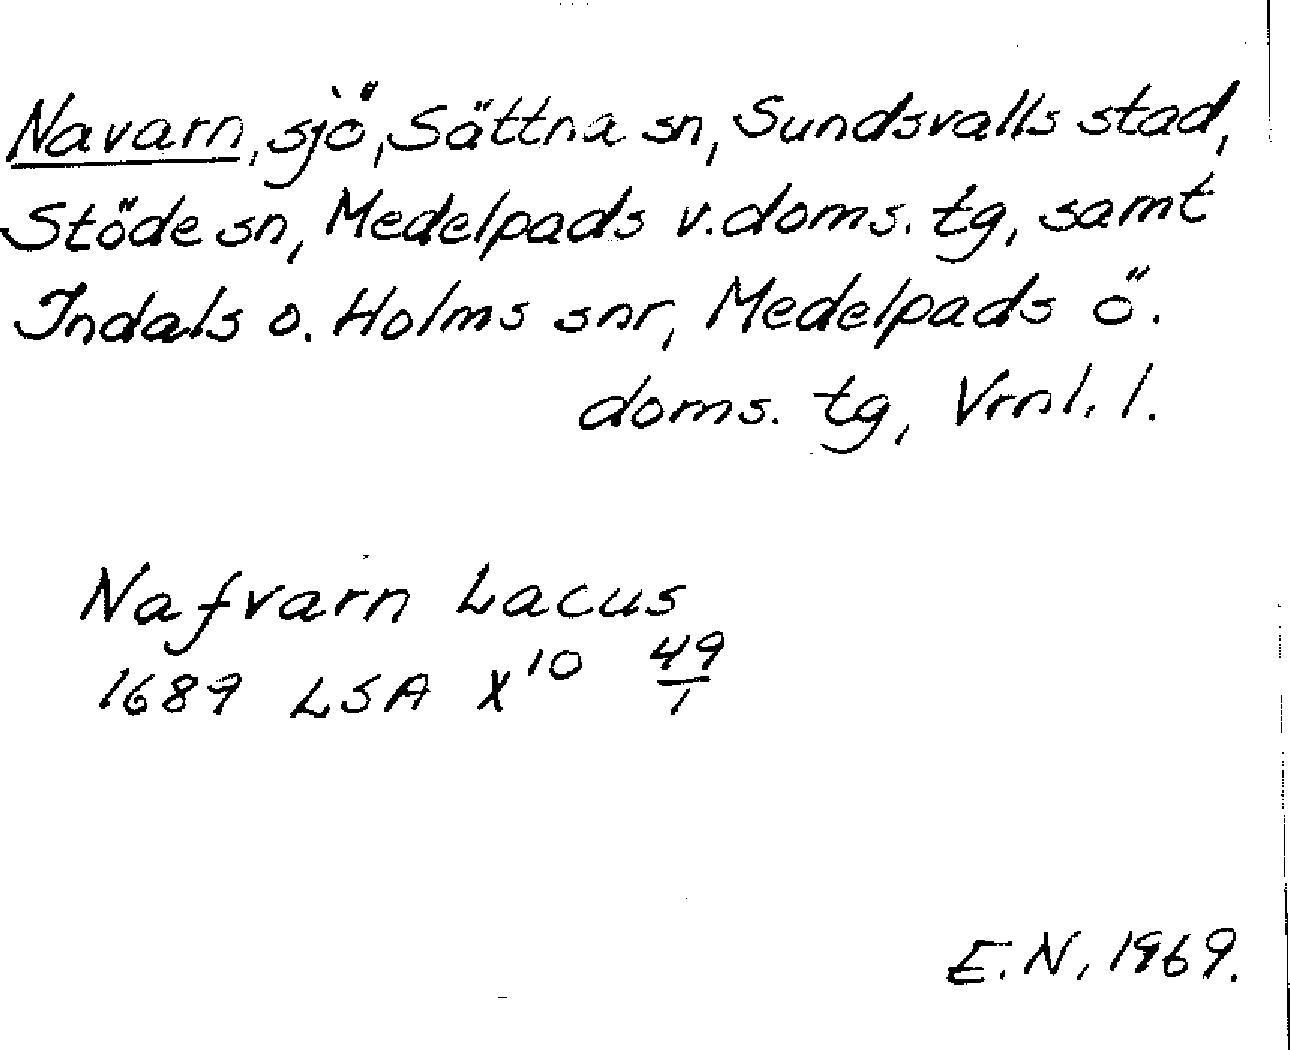 Navarn, sjö, Sättna sn, Sundsvalls stad,
Stöde sn, Medelpads v. doms. tg, samt
Indals o. Holms snr, Medelpads ö.
doms. tg, Vrnl. l.
Nafvarn Lacus
1689 LSA X¹⁰ 49/1
E.N. 1969.